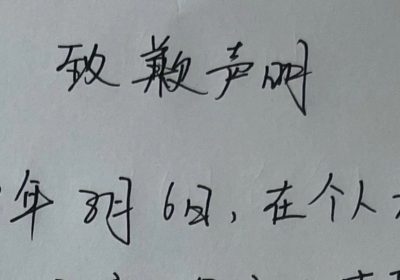 致歉声明
年 8月 6日,在个人